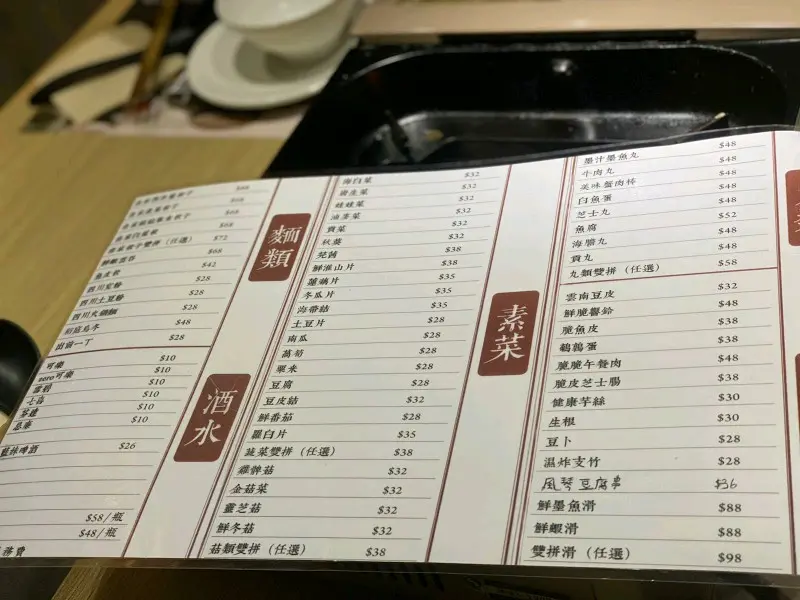 $68
$68
$68
$68
(任選) $72
$68
魚皮餃 $42
四川寬粉 $28
四川土豆粉 $28
四川火鍋麵 $28
稻庭烏冬 $48
出前一丁 $28
麵類
可樂 $10
zero可樂 $10
雪碧 $10
七喜 $10
$10
$10
藍妹啤酒 $26
$58/瓶
$48/瓶
務費
酒水
海白菜 $32
唐生菜 $32
娃娃菜 $32
油麥菜 $32
貢菜 $32
秋葵 $32
茼蒿 $38
鮮淮山片 $38
蓮藕片 $35
冬瓜片 $35
海帶結 $35
土豆片 $28
南瓜 $28
萵筍 $28
粟米 $28
豆腐 $28
豆皮結 $32
鮮番茄 $28
蘿白片 $35
蔬菜雙拼 (任選) $38
雞髀菇 $32
金菇菜 $32
靈芝菇 $32
鮮冬菇 $32
菇類雙拼 (任選) $38
素菜
墨汁墨魚丸 $48
牛肉丸 $48
美味蟹肉棒 $48
白魚蛋 $48
芝士丸 $48
魚腐 $52
海膽丸 $48
貢丸 $48
丸類雙拼 (任選) $58
雲南豆皮 $32
鮮脆響鈴 $48
脆魚皮 $38
鵪鶉蛋 $38
脆脆午餐肉 $48
脆皮芝士腸 $38
健康芋絲 $30
生根 $30
豆卜 $28
濕炸支竹 $28
風琴豆腐串 $36
鮮墨魚滑 $88
鮮蝦滑 $88
雙拼滑 (任選) $98